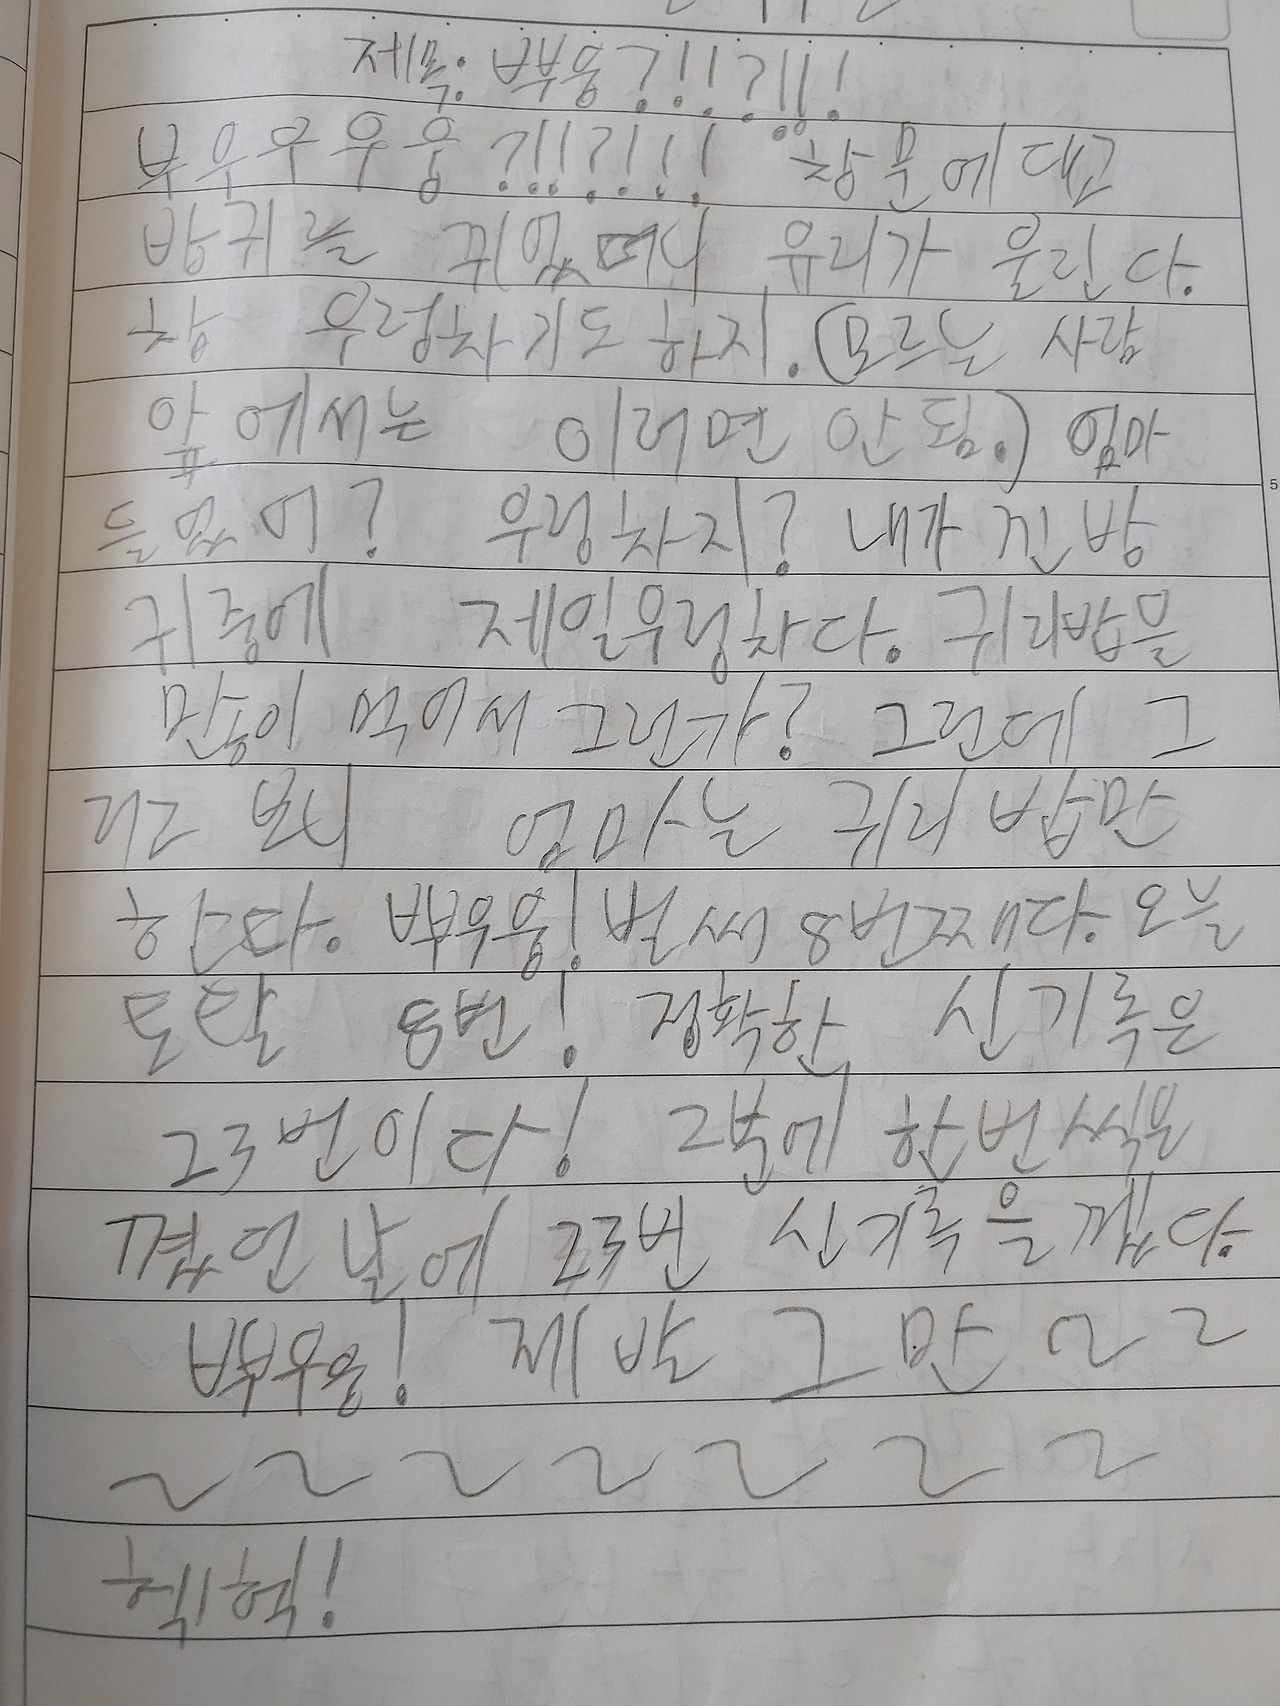 제목: 뿌붕?!!!?!!!
부우우우웅?!!!?!!! 창문에 대고
방귀를 뀌었더니 유리가 울린다.
참 우렁차기도 하지. (모르는 사람
앞에서는 이러면 안 됨.) 엄마
들었어? 우렁차지? 내가 낀 방
귀 중에 제일 우렁차다. 귀리밥을
많이 먹어서 그런가? 그런데 그
러고 보니 엄마는 귀리 밥만
한다. 뿌우웅! 벌써 8번째다. 오늘
토탈 8번! 정확한 신기록은
23번이다! 2분에 한번씩은
꼈던 날에 23번 신기록을 깼다.
뿌우웅! 제발 그만~~
~~~~~~
헥헥!